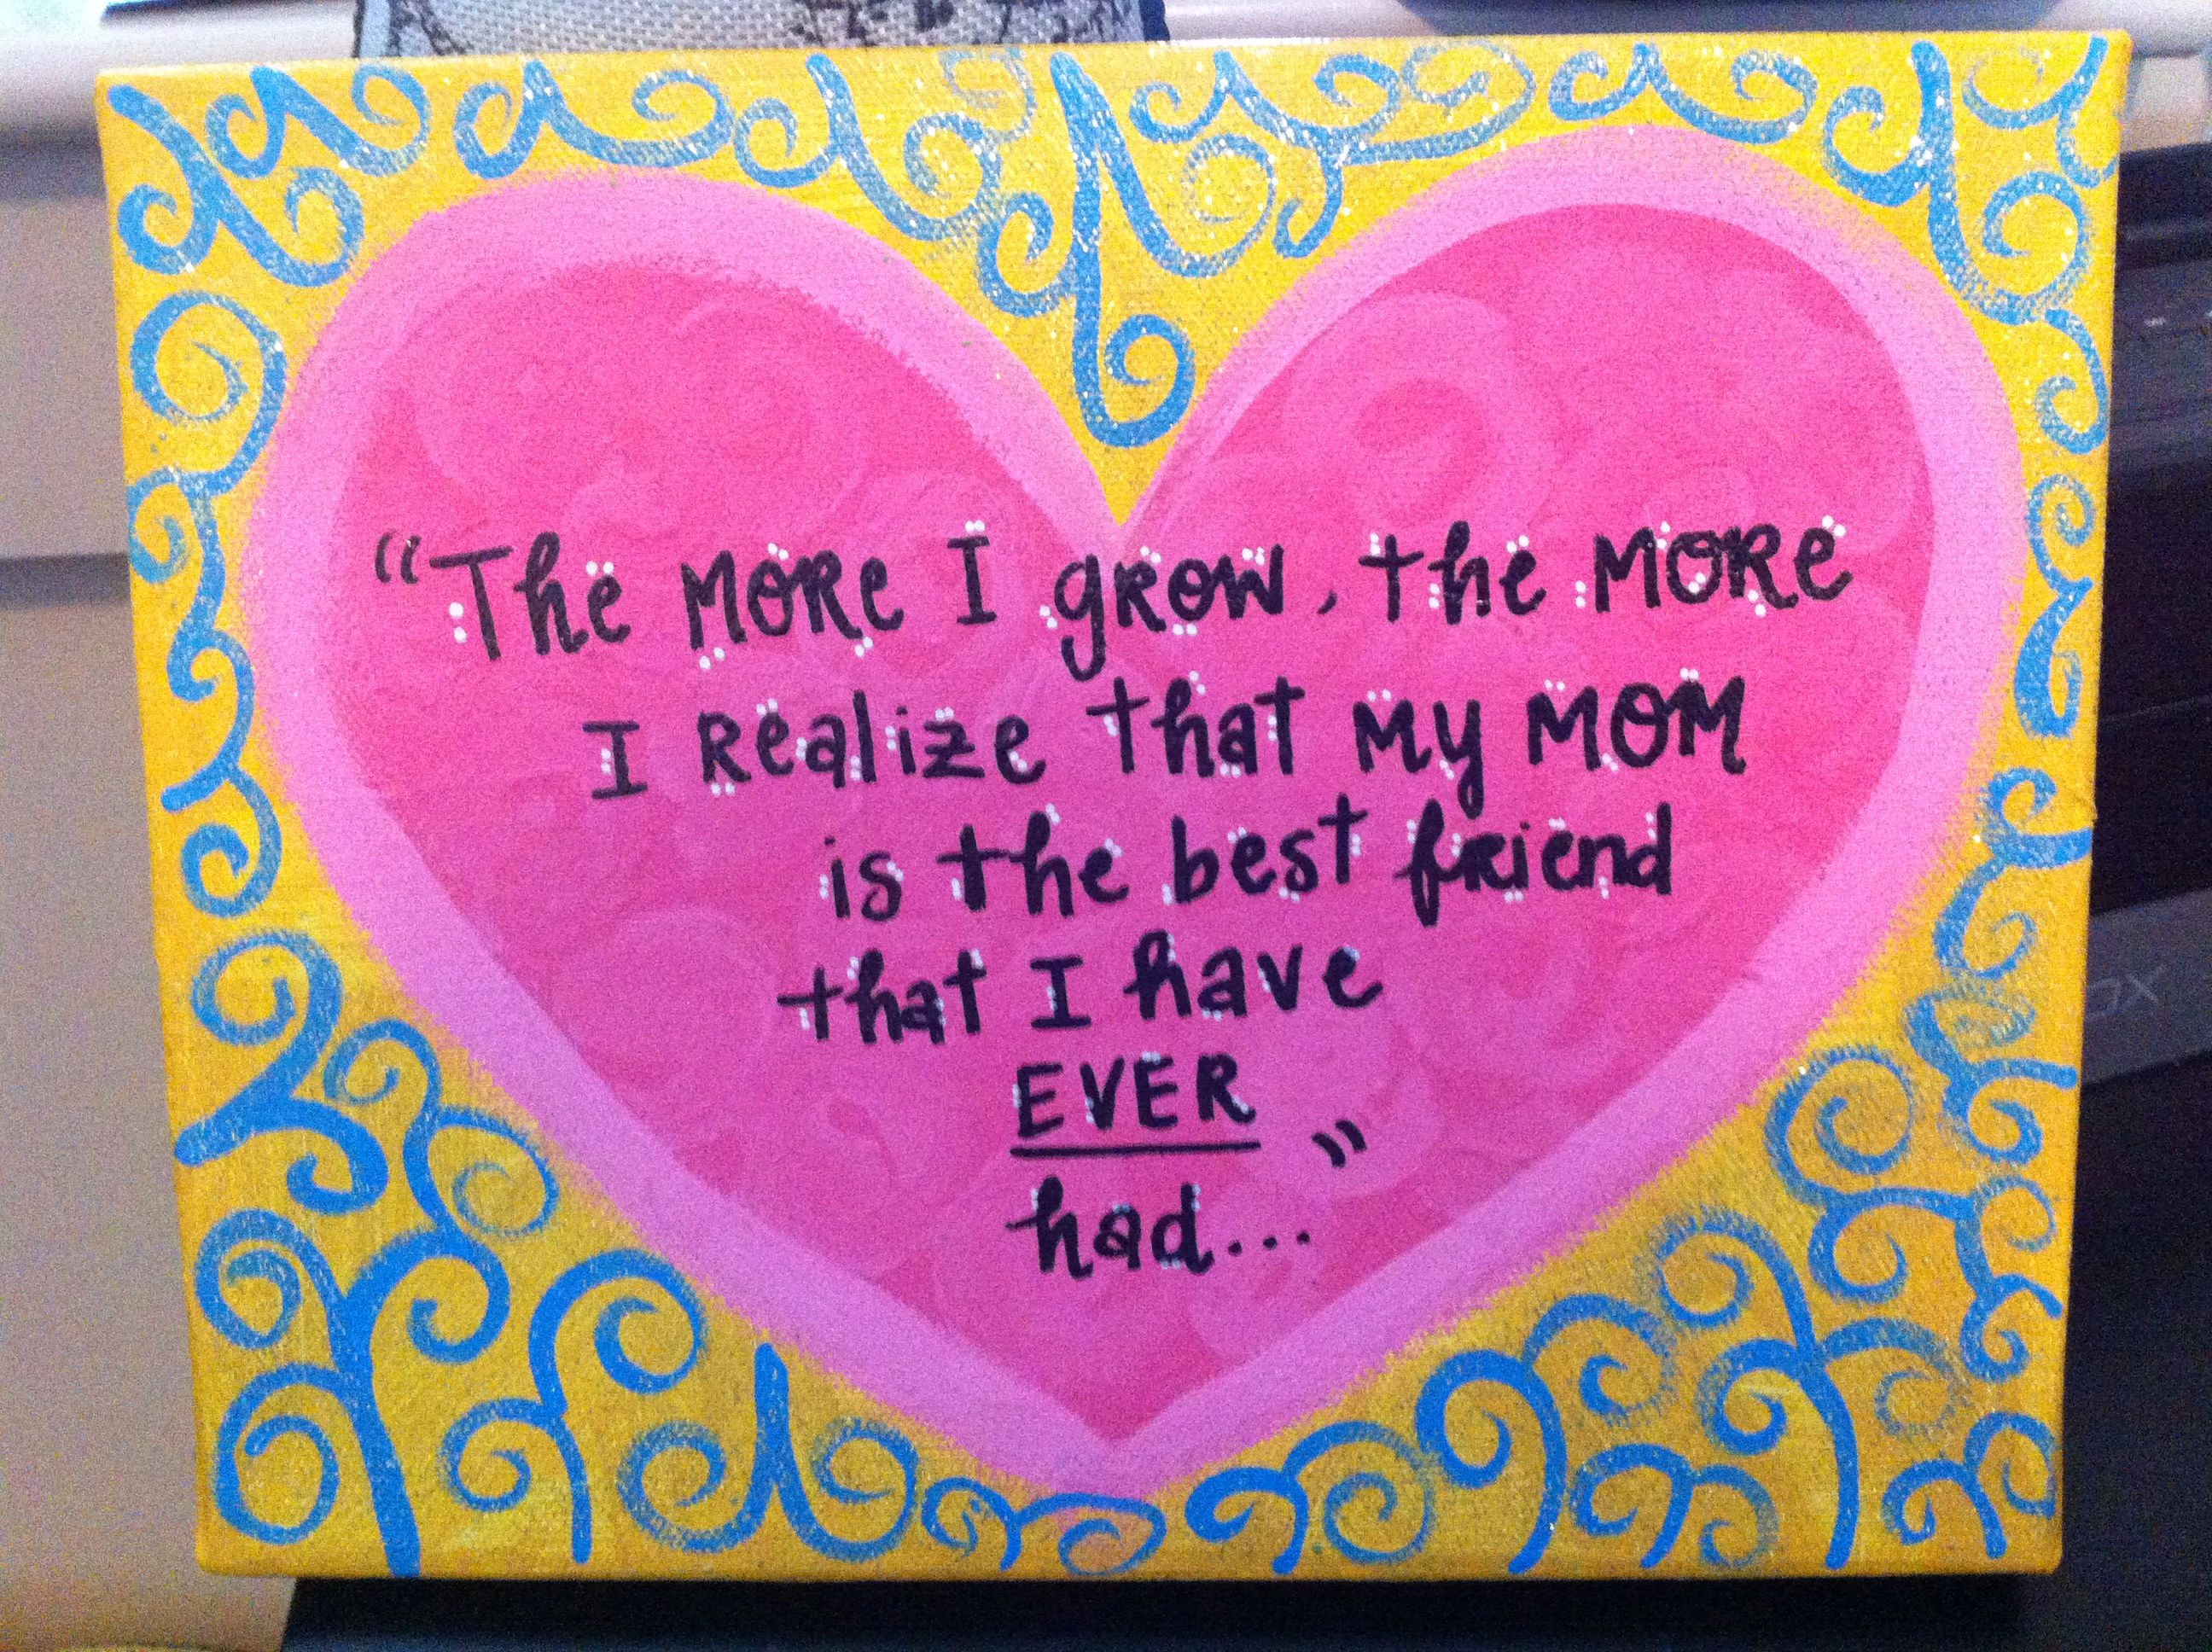 “The MORe I gRow, the MORe
I Realize that My MOM
is the best fRiend
that I have
EVER
had...”